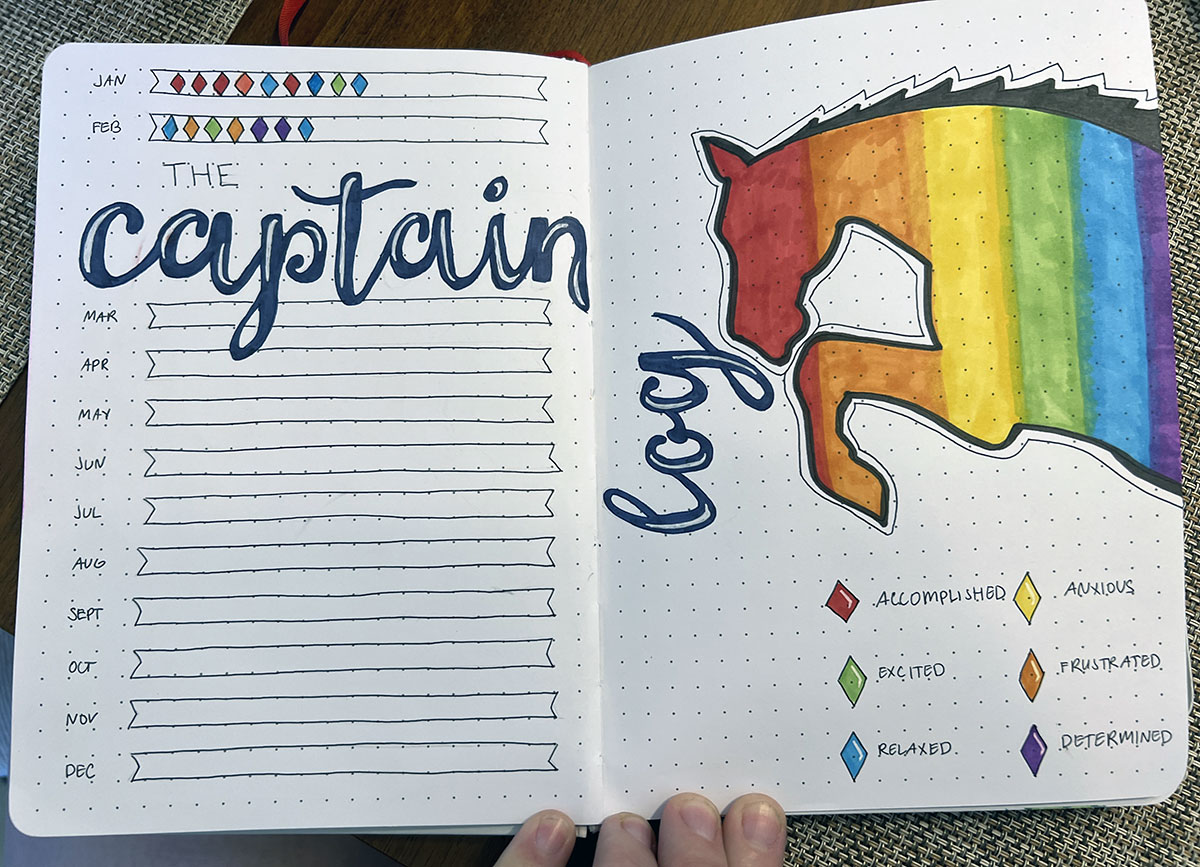 JAN
FEB
THE
captain
MAR
APR
MAY
JUN
JUL
AUG
SEPT
OCT
NOV
DEC
log
ACCOMPLISHED
ANXIOUS
EXCITED
FRUSTRATED
RELAXED
DETERMINED